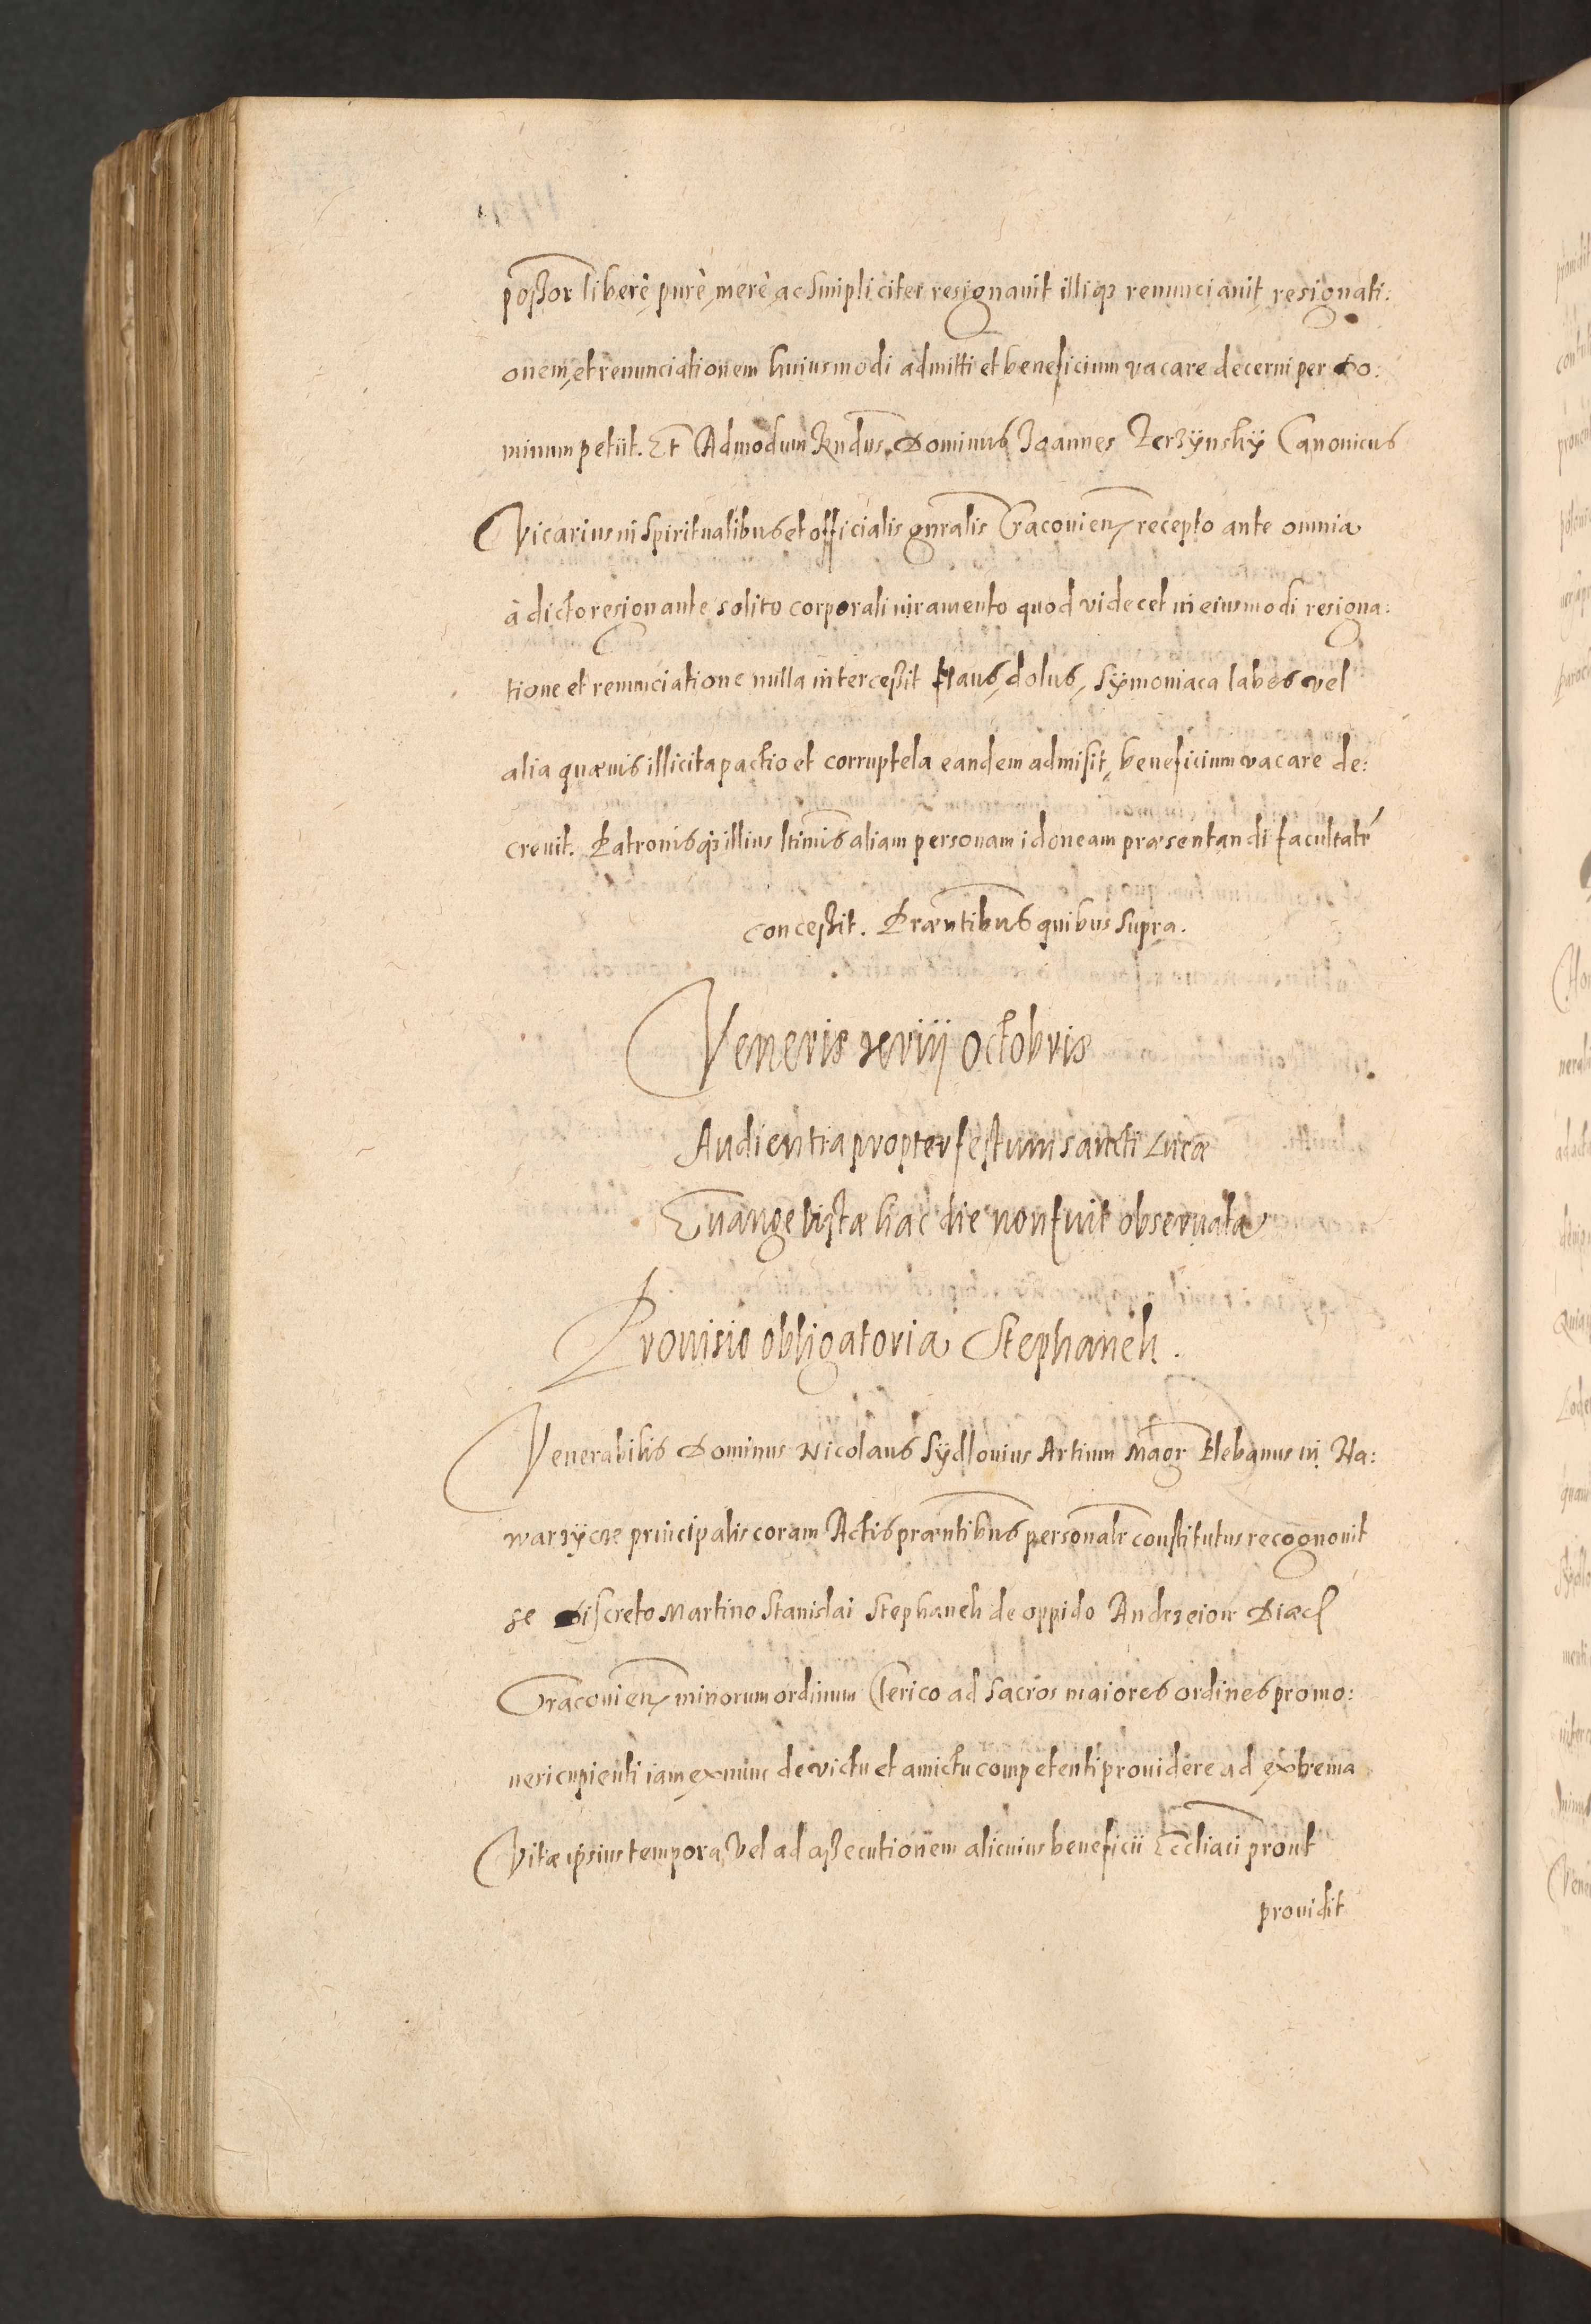 possor liberè, purè, merè, ac Simpliciter resignauit illiq3 renunciauit, resignati:
onem, et renunciationem huiusmodi admitti et beneficium vacare decerni per Do:
minum petiit. Et Admodum Rndus. Dominus Ioannes Zerzÿnskÿ Canonicus
Vicarius in Spiritualibus et officialis gnralis Cracouien, recepto ante omnia
à dicto resignante solito corporali iuramento quod videcet in eiusmodi resigna:
tione et renunciatione nulla intercessit fraus, dolus, Sÿmoniaca labes vel
alia quæuis illicita pactio et corruptela eandem admisit, beneficium vacare de:
creuit. Patronisq3 illius ltimis aliam personam idoneam præsentandi facultatē
concessit. Præntibus quibus Supra.
Veneris xviij octobris
Audientia propter festum sancti Lucæ
Euangelistæ hac die non fuit obseruata
Prouisio obligatoria Stephanek.
Venerabilis Dominus Nicolaus Sÿdlouius Artium Magr Plebanus in Na:
warzÿcze principalis coram Actis præntibus personalr constitutus recognouit
se discreto Martino Stanislai Stephanek de oppido Andrzeiow Diæc
Cracouien, minorum ordinum Clerico ad Sacros maiores ordines promo:
ueri cupienti iam ex nunc de victu et amictu competenti prouidere ad extrema
Vitæ ipsius tempora, Vel ad assecutionem alicuius beneficii Eccliaci prout
prouidit